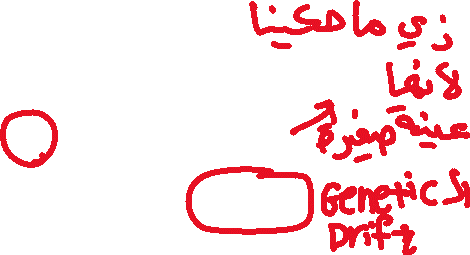 زي ما حكينا
لانها
عينة صغيرة
ال Genetic
Drift